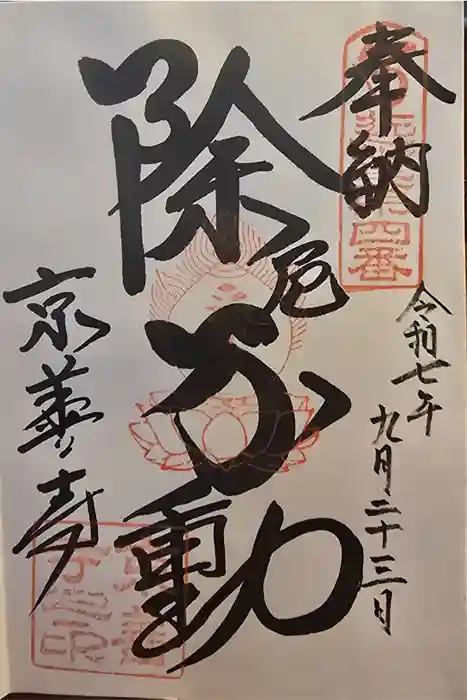 奉納
令和七年
九月二十三日
除厄不動
京善寺